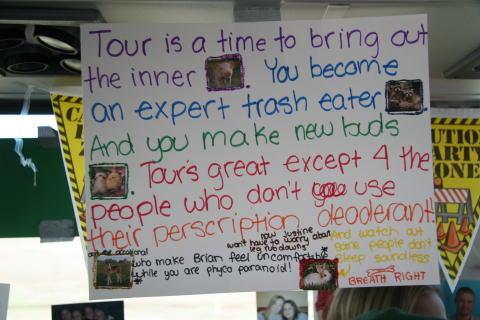 Tour is a time to bring out
the inner . You become
an expert trash eater .
And you make new buds
. Tour's great except 4 the
people who don't use
their perscription deoderant!
now Justine
won't have to worry about
leg rub downs
and the occational
who make Brian feel uncomfortable
while you are phyco paranoid!
And watch out
some people don't
sleep soundless
BREATH RIGHT
CA
UTION
PARTY
ZONE